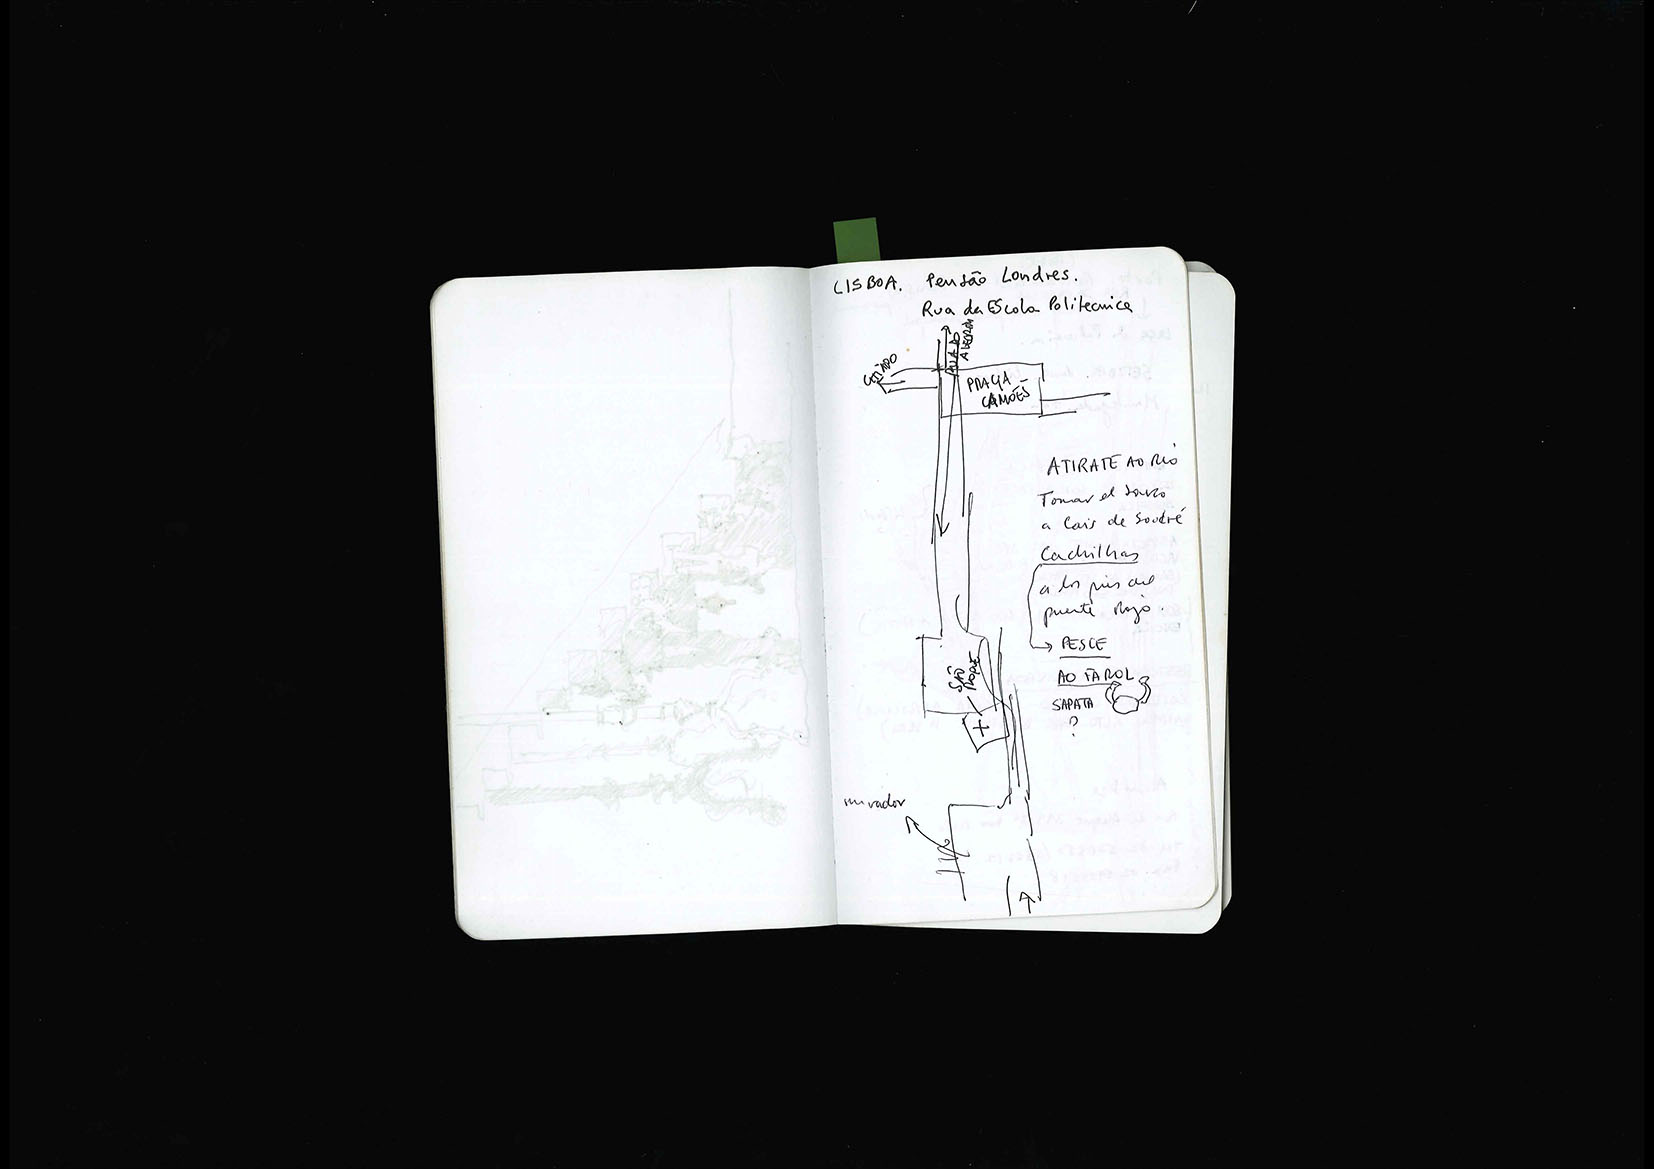 LISBOA. Pensão Londres.
Rua da Escola Politecnica
RUA DO
ALECRIM
CHIADO
PRAÇA
CAMÕES
ATIRATE AO RIO
Tomar el barco
a Cais de Soudré
Cachilhas
a los pies del
puente Rojo.
PESCE
AO FAROL
SAPATA
?
SÃO
ROQUE
mirador